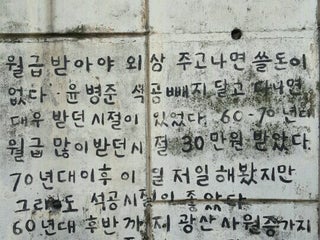 월급 받아야 외상 주고나면 쓸돈이
없다. 윤병준 석공빼지 달고 다니면
대우 받던시절이 있었다. 60-70년대
월급 많이받던시절 30만원 받았다.
70년대이후 이일저일해봤지만
그래도 석공시절이 좋았다.
60년대 후반까지 광산사원증까지